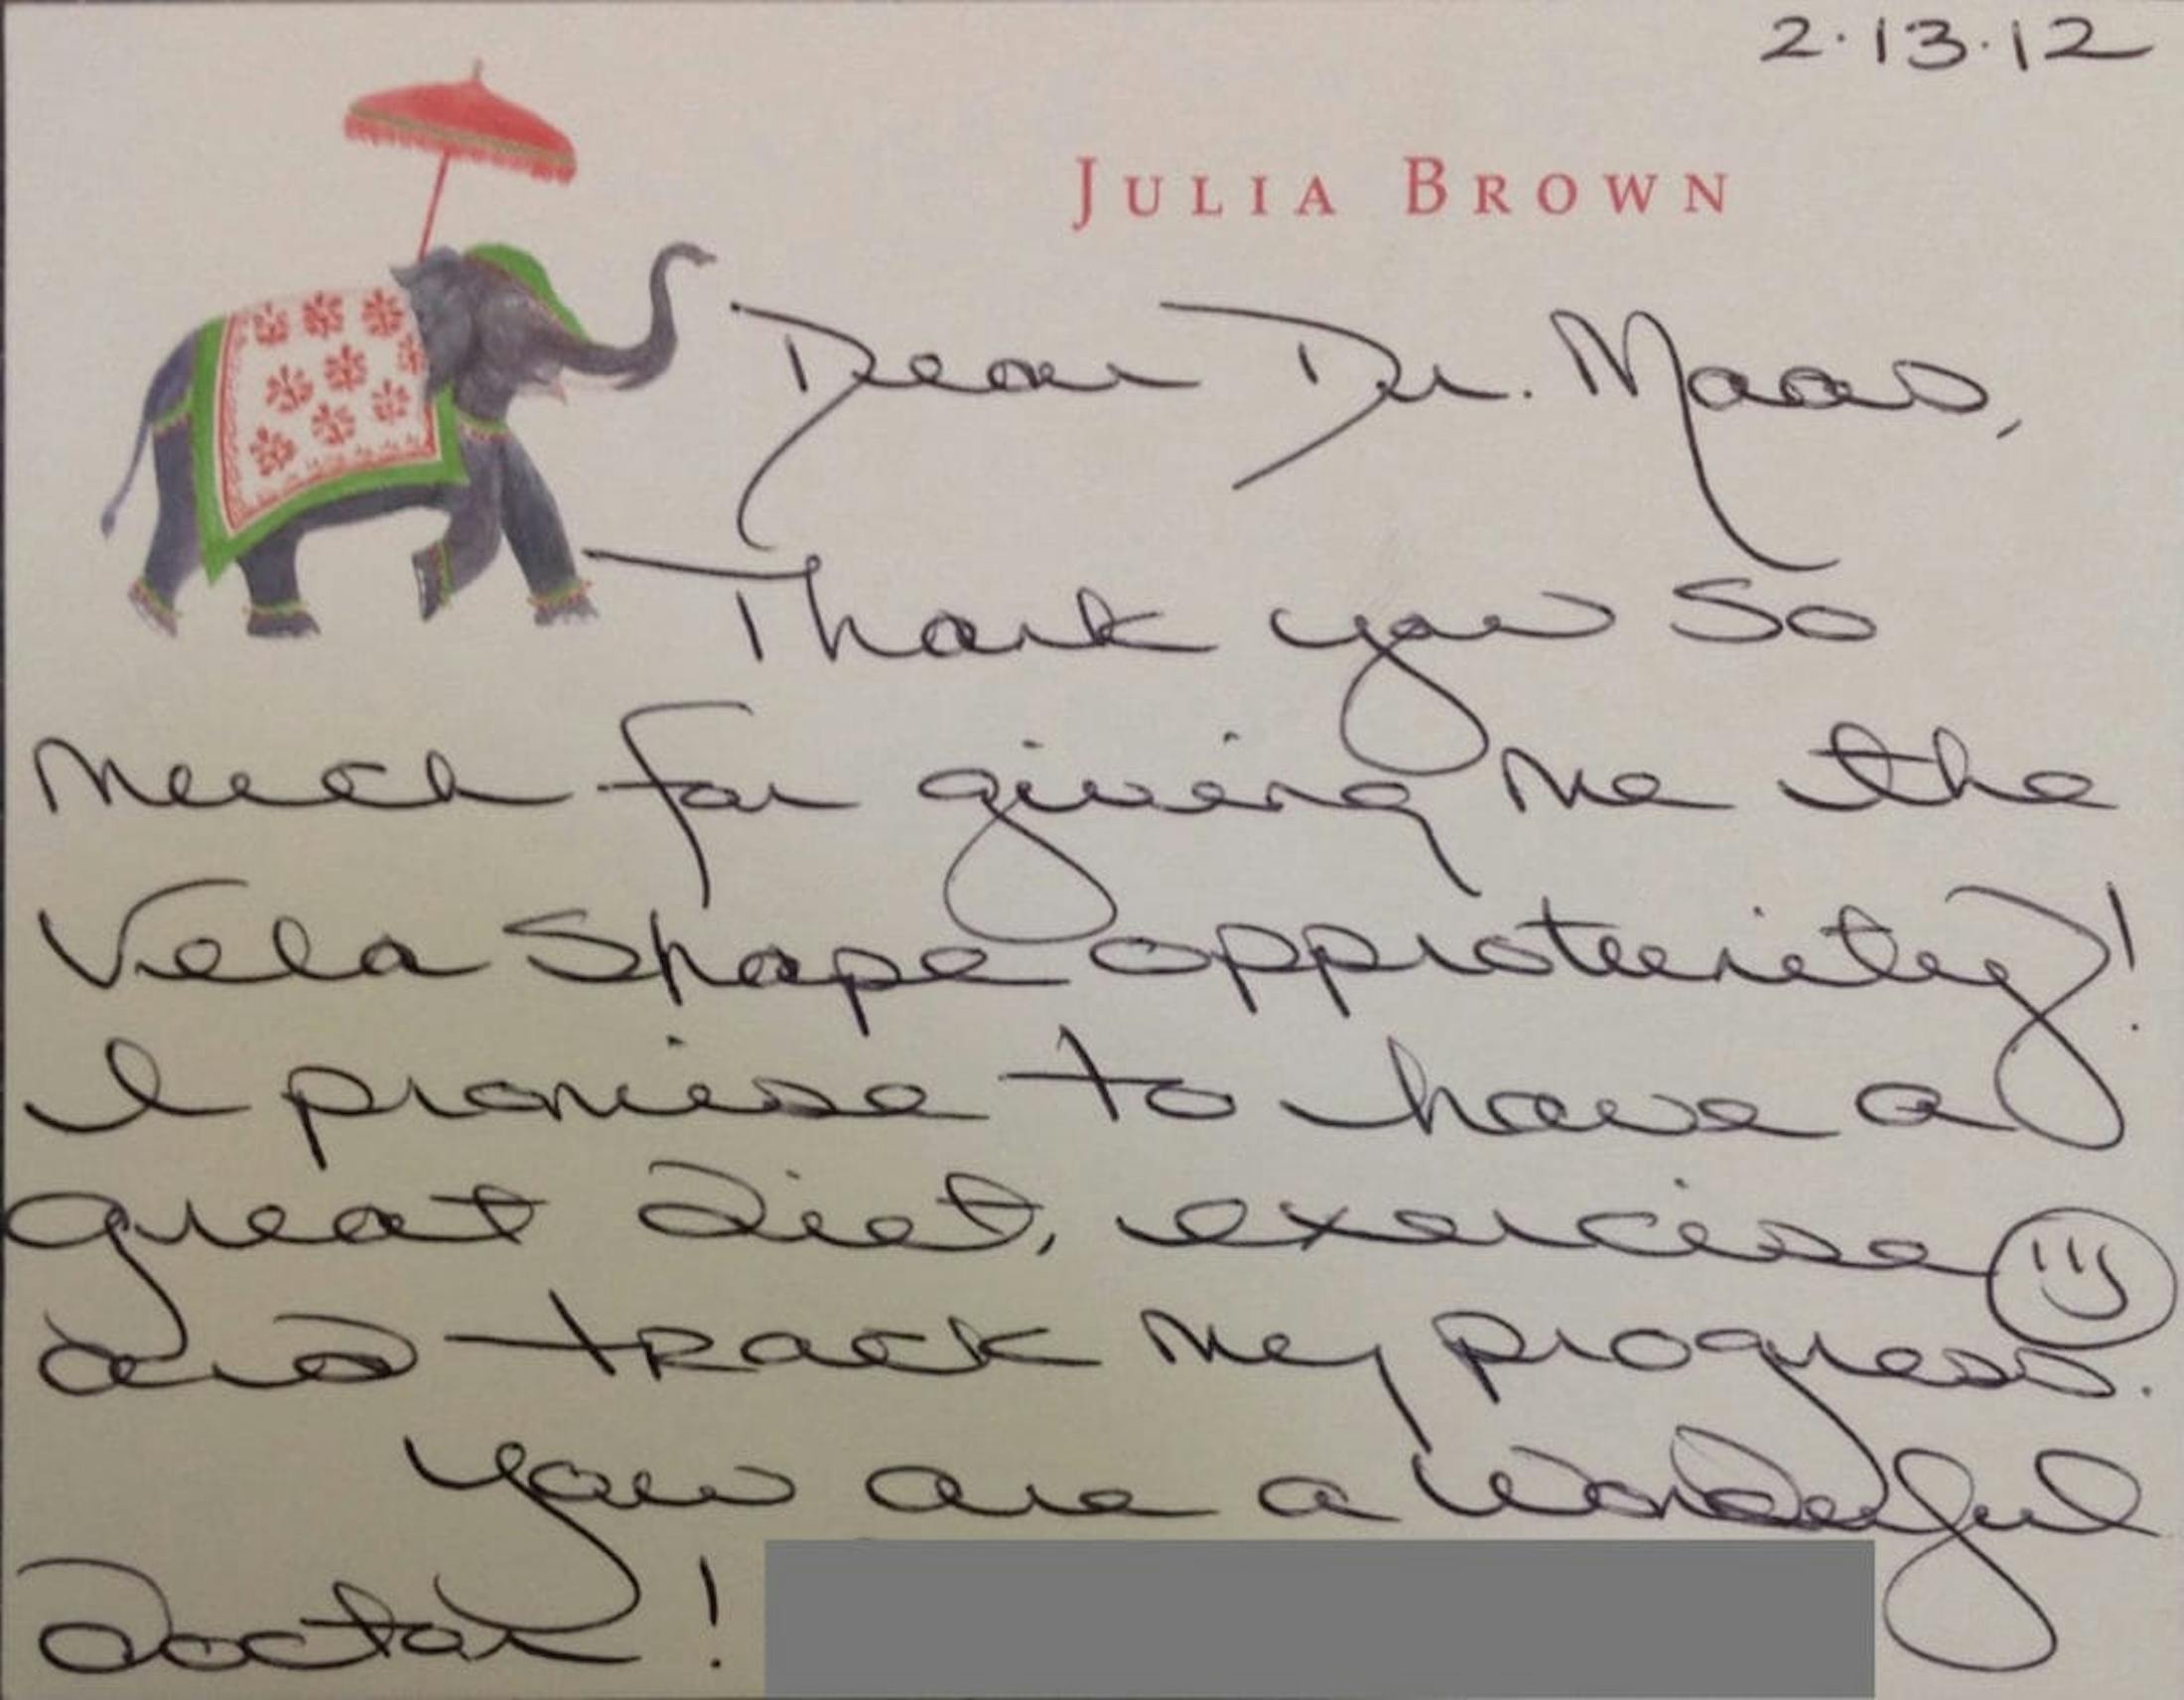 2.13.12
JULIA BROWN
Dear Dr. Maas,
Thank you so
much for giving me the
Vela Shape opprotunity!
I promise to have a
great diet, exercise
and track my progress.
You are a wonderful
doctor!